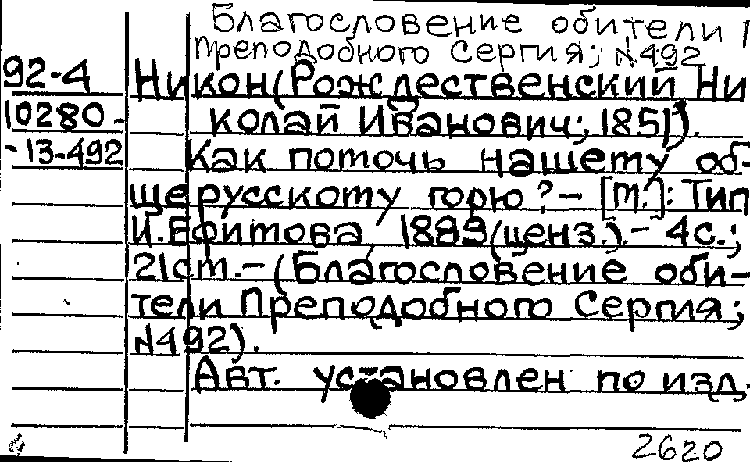 Благословение обители
Преподобного Сергия; N492
92-4 Никон(Рождественский Ни
10280- колай Иванович; 1851).
-13-492 Как помочь нашему об-
щерусскому горю? - [М.]: Тип
И.Ефимова, 1899(ценз.). - 4с.;
21см. - (Благословение оби-
тели Преподобного Сергия;
N492).
Авт. установлен по изд.
2620